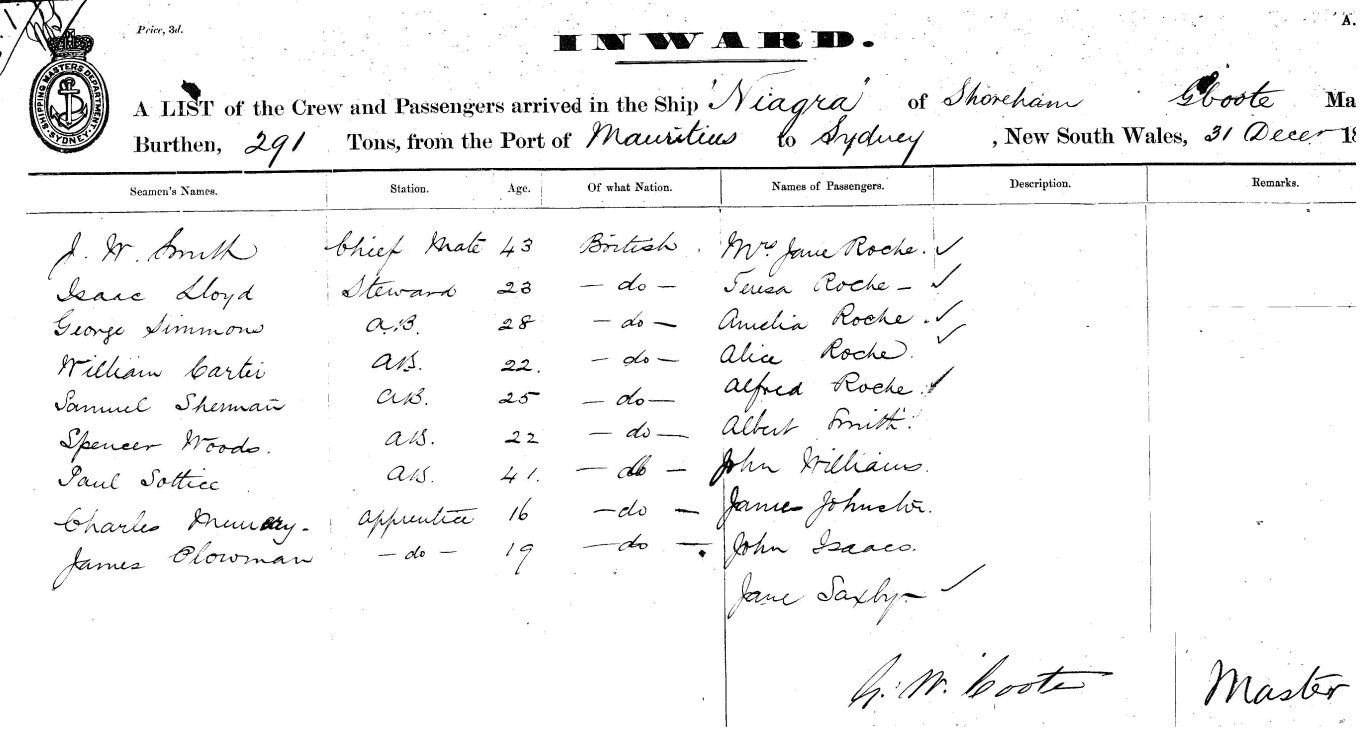 Price, 3d.
A.
INWARD.
SHIPPING MASTERS DEPARTMENT SYDNEY
A LIST of the Crew and Passengers arrived in the Ship "Niagra" of Shoreham G Coote Ma
Burthen, 291 Tons, from the Port of Mauritius to Sydney, New South Wales, 31 Decer 18
Seamen's Names. Station. Age. Of what Nation. Names of Passengers. Description. Remarks.
J. W. Smith Chief Mate 43 British. Mrs. Jane Roche. ✓
Isaac Lloyd Steward 23 - do - Teresa Roche - ✓
George Simmons A.B. 28 - do - Amelia Roche. ✓
William Carter AB. 22. - do - Alice Roche. ✓
Samuel Sherman AB. 25 - do - Alfred Roche. ✓
Spencer Woods. AB. 22 - do - Albert Smith.
Paul AB. 41. - do - John Williams.
Charles apprentice 16 - do - James Johnston.
James Plowman - do - 19 - do - John Isaacs.
Jane Saxby - ✓
G. W. Coote Master